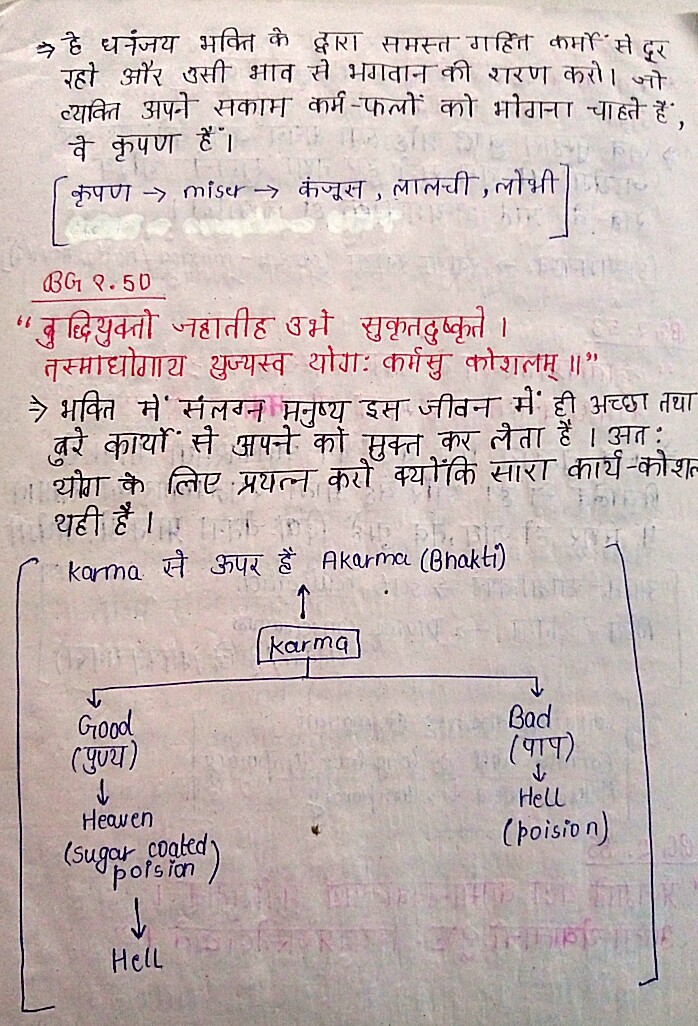 ⇒ हे धनंजय भक्ति के द्वारा समस्त गर्हित कर्मों से दूर
रहो और उसी भाव से भगवान की शरण करो। जो
व्यक्ति अपने सकाम कर्म-फलों को भोगना चाहते हैं,
वे कृपण हैं।
[कृपण → miser → कंजूस, लालची, लोभी]
BG २.50
“बुद्धियुक्तो जहातीह उभे सुकृतदुष्कृते।
तस्माद्योगाय युज्यस्व योगः कर्मसु कोशलम्॥”
⇒ भक्ति में संलग्न मनुष्य इस जीवन में ही अच्छा तथा
बुरे कार्यों से अपने को मुक्त कर लेता है। अतः
योग के लिए प्रयत्न करो क्योंकि सारा कार्य-कोशल
यही है।
Karma से ऊपर है Akarma (Bhakti)
↑
Karma
Good Bad
(पुण्य) (पाप)
↓ ↓
Heaven Hell
(sugar coated (poision)
poision)
↓
Hell